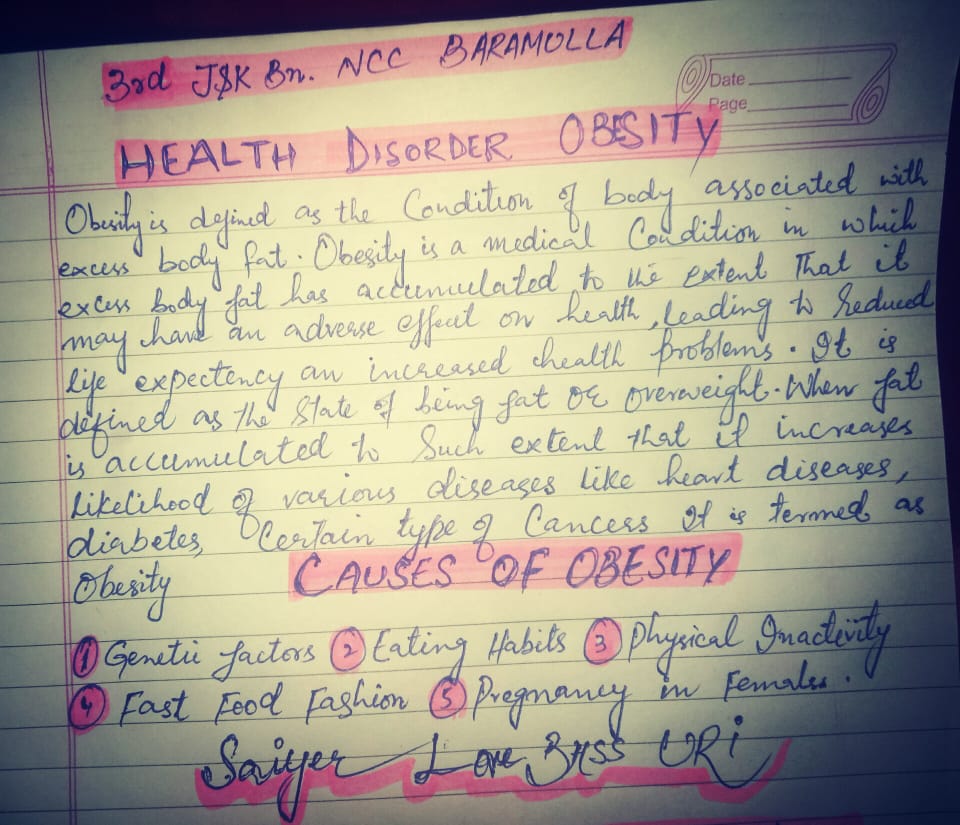 3rd J&K Bn. NCC BARAMULLA
Date
Page
HEALTH DISORDER OBESITY
Obesity is defined as the Condition of body associated with
excess body fat. Obesity is a medical Condition in which
excess body fat has accumulated to the extent That it
may have an adverse effect on health, leading to Reduced
life expectency an increased health problems. It is
defined as The State of being fat or overweight. When fat
is accumulated to Such extent that it increases
likelihood of various diseases like heart diseases,
diabetes, Certain type of Cancers It is termed as
Obesity
CAUSES OF OBESITY
1 Genetic factors 2 Eating Habits 3 Physical Inactivity
4 Fast Food Fashion 5 Pregnancy in Females.
Lone BHSS URi